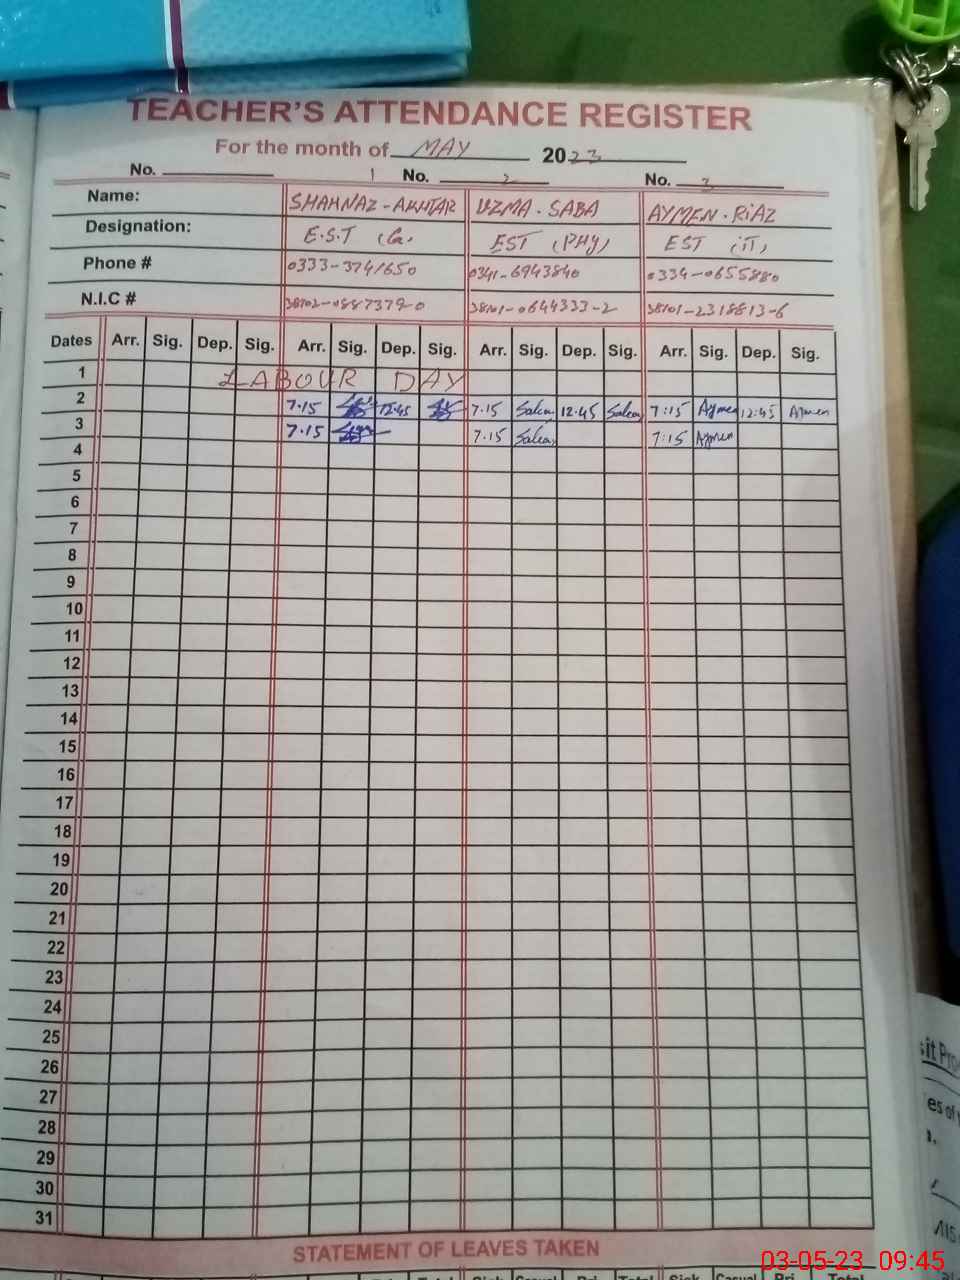 TEACHER'S ATTENDANCE REGISTER
For the month of MAY 2023
No. 1 No. 2 No. 3
Name: SHAHNAZ-AKHTAR UZMA. SABA AYMEN. RiAZ
Designation: E.S.T EST (PHY) EST (iT)
Phone # 0333-3741650 0341-6943840 0334-0655880
N.I.C # 38101-0644333-2 38101-2318813-6
Dates Arr. Sig. Dep. Sig. Arr. Sig. Dep. Sig. Arr. Sig. Dep. Sig. Arr. Sig. Dep. Sig.
1 LABOUR DAY
2 7.15 12.45 7.15 12.45 7:15 Aymen 12:45 Aymen
3 7.15 7.15 7:15 Aymen
4
5
6
7
8
9
10
11
12
13
14
15
16
17
18
19
20
21
22
23
24
25
26
27
28
29
30
31
STATEMENT OF LEAVES TAKEN
Total Sick Casual Pri. Total Sick Casual Pri. Total
it Pro
es of
03-05-23 09:45